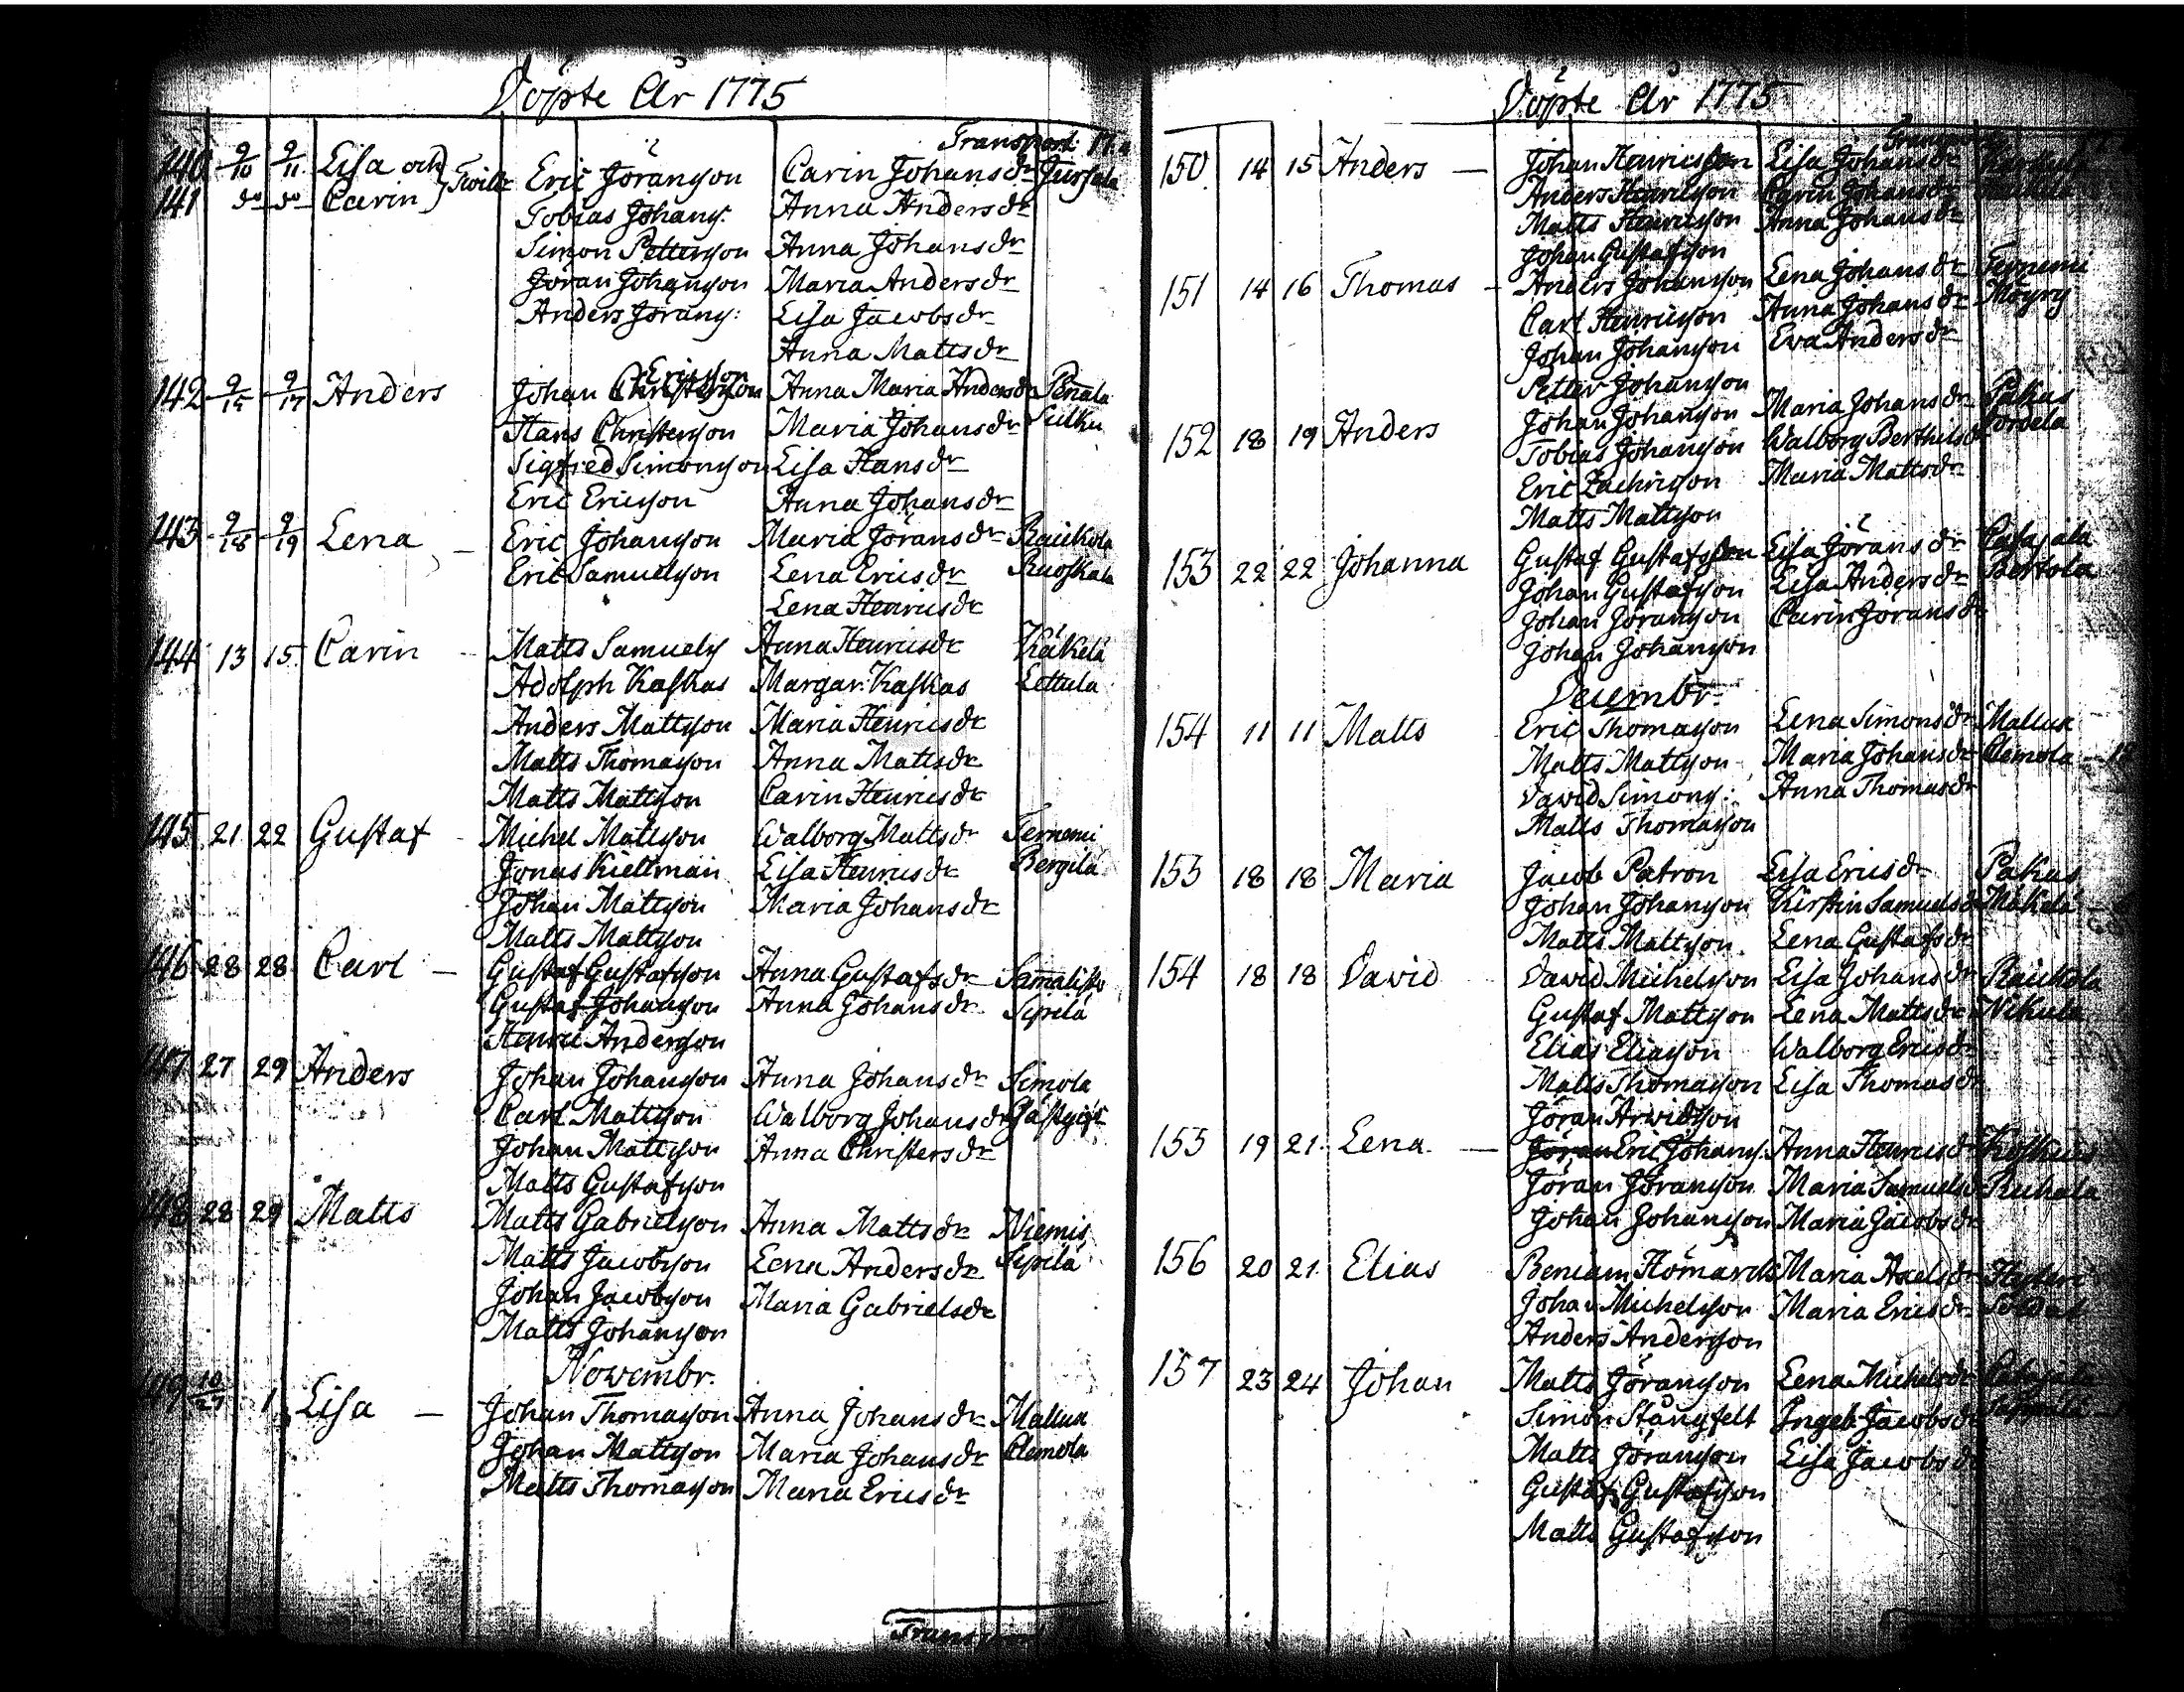 Döpte År 1775
Transport
140 9/10 9/11 Lisa och Twill: Eric Jöransson Carin Johansdr Jussala
141 do do Carin
Tobias Johans: Anna Andersdr
Simon Pettersson Anna Johansdr
Jöran Johansson Maria Andersdr
Anders Jörans: Lisa Jacobsdr
Anna Mattsdr
Ericsson
142 9/15 9/17 Anders Johan Christersson Anna Maria Andersdr Penala
Hans Christersson Maria Johansdr Sulku
Sigfred Simonsson Lisa Hansdr
Eric Ericsson Anna Johansdr
143 9/18 9/19 Lena Eric Johansson Maria Jöransdr Raukola
Eric Samuelsson Lena Ericsdr Ruoskala
Lena Henricsdr
144 13 15 Carin Matts Samuels Anna Henricsdr Käkelä
Adolph Kaskas Margar: Kaskas Lettula
Anders Mattsson Maria Henricsdr
Matts Thomasson Anna Mattsdr
Matts Mattsson Carin Henricsdr
145 21 22 Gustaf Michel Mattsson Walborg Mattsdr Ternemi
Jonas Kiellman Lisa Henricsdr Bergilä
Johan Mattsson Maria Johansdr
Matts Mattsson
146 28 28 Carl Gustaf Gustafsson Anna Gustafsdr Samalisto
Gustaf Johansson Anna Johansdr Sipilä
Henric Andersson
147 27 29 Anders Johan Johansson Anna Johansdr Simola
Carl Mattsson Walborg Johansdr Gästgif:
Johan Mattsson Anna Christersdr
Matts Gustafsson
148 28 29 Matts Matts Gabrielsson Anna Mattsdr Niemis
Matts Jacobsson Lena Andersdr Sipilä
Johan Jacobsson Maria Gabrielsdr
Matts Johansson
Novembr.
149 10/27 1 Lisa Johan Thomasson Anna Johansdr Mallua
Johan Mattsson Maria Johansdr Clemola
Matts Thomasson Maria Ericsdr
Transport
Döpte År 1775
150 14 15 Anders Johan Henricsson Lisa Johansdr
Anders Henricsson Carin Johansdr
Matts Henricsson Anna Johansdr
Johan Gustafsson
151 14 16 Thomas Anders Johansson Lena Johansdr Ternemi
Carl Henricsson Anna Johansdr Möyry
Johan Johansson Eva Andersdr
Petter Johansson
152 18 19 Anders Johan Johansson Maria Johansdr Pakas
Tobias Johansson Walborg Berthelsdr Cordela
Eric Zachrisson Maria Mattsdr
Matts Mattsson
153 22 22 Johanna Gustaf Gustafsson Lisa Jöransdr
Johan Gustafsson Lisa Andersdr Bertola
Johan Jöransson Carin Jöransdr
Johan Johansson
Decembr.
154 11 11 Matts Eric Thomasson Lena Simonsdr Mallua
Matts Mattsson Maria Johansdr Clemola
David Simons: Anna Thomasdr
Matts Thomasson
155 18 18 Maria Jacob Patron Lisa Ericsdr Pakas
Johan Johansson Kirstin Samuelsdr Mäkelä
Matts Mattsson Lena Gustafsdr
154 18 18 David David Michelsson Lisa Johansdr Raukola
Gustaf Mattsson Lena Mattsdr Nikula
Elias Eliasson Walborg Ericsdr
Matts Thomasson Lisa Thomasdr
Jöran Arwidsson
155 19 21 Lena Jöran Eric Johans: Anna Henricsdr
Jöran Jöransson Maria Samuelsdr
Johan Johansson Maria Jacobsdr
156 20 21 Elias Beniam Homarck Maria Axelsdr
Johan Michelsson Maria Ericsdr
Anders Andersson
157 23 24 Johan Matts Jöransson Lena Michelsdr
Simon Stångfelt Ingeb: Jacobsdr
Matts Jöransson Lisa Jacobsdr
Gustaf Gustafsson
Matts Gustafsson